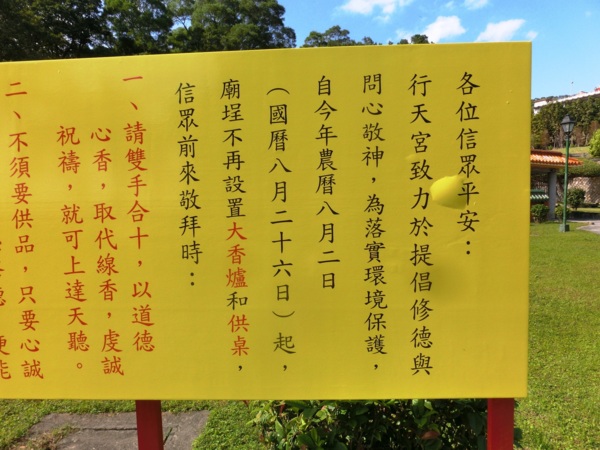 各位信眾平安：
行天宮致力於提倡修德與
問心敬神，為落實環境保護，
自今年農曆八月二日
（國曆八月二十六日）起，
廟埕不再設置大香爐和供桌，
信眾前來敬拜時：
一、請雙手合十，以道德
心香，取代線香，虔誠
祝禱，就可上達天聽。
二、不須要供品，只要心誠